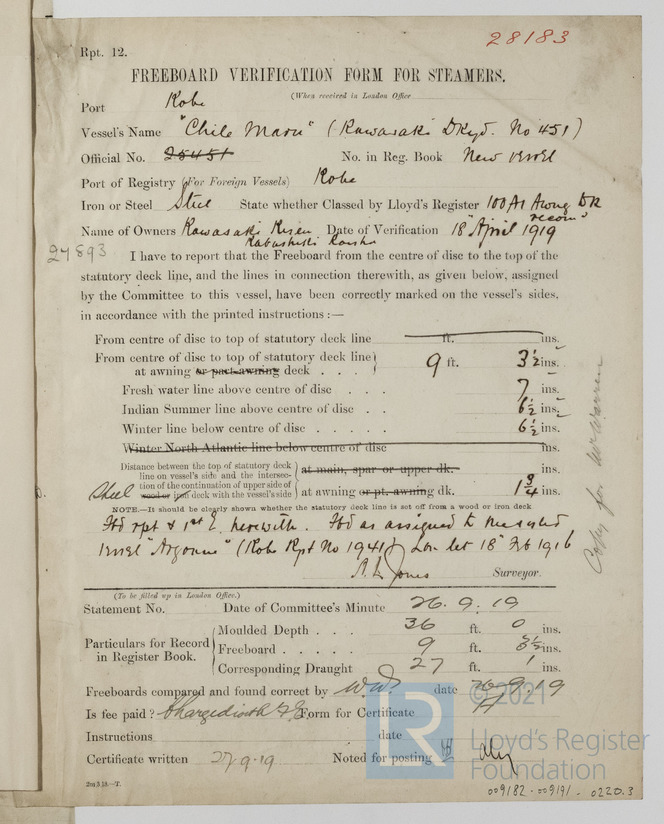 28183
Rpt. 12.
FREEBOARD VERIFICATION FORM FOR STEAMERS.
(When received in London Office
Port Kobe
Vessel's Name "Chile Maru" (Kawasaki Dkyd. No 451)
Official No. 25451 No. in Reg. Book New Vessel
Port of Registry (For Foreign Vessels) Kobe
Iron or Steel Steel State whether Classed by Lloyd's Register 100A1 Awng Dk
recomd
Name of Owners Kawasaki Kisen Date of Verification 18th April 1919
Kabushiki Kaisha
27893
I have to report that the Freeboard from the centre of disc to the top of the
statutory deck line, and the lines in connection therewith, as given below, assigned
by the Committee to this vessel, have been correctly marked on the vessel's sides,
in accordance with the printed instructions :—
From centre of disc to top of statutory deck line ft. ins.
From centre of disc to top of statutory deck line
at awning or part awning deck . . . 9 ft. 3½ ins.
Fresh water line above centre of disc . . . 7 ins.
Indian Summer line above centre of disc . . 6½ ins.
Winter line below centre of disc . . . . . 6½ ins.
Winter North Atlantic line below centre of disc ins.
Distance between the top of statutory deck
line on vessel's side and the intersec-
tion of the continuation of upper side of
steel wood or iron deck with the vessel's side
at main, spar or upper dk. ins.
at awning or pt. awning dk. 1¾ ins.
NOTE.—It should be clearly shown whether the statutory deck line is set off from a wood or iron deck
Fbd rpt & 1st E. herewith. Fbd as assigned to
vessel "Argonne" (Kobe Rpt No 1941) Lon let 18th Feb 1916
A. L. Jones Surveyor.
Copy for Mr Warren
(To be filled up in London Office.)
Statement No. Date of Committee's Minute 26.9.19
Particulars for Record
in Register Book.
Moulded Depth . . . 36 ft. 0 ins.
Freeboard . . . . . 9 ft. 3½ ins.
Corresponding Draught 27 ft. 1 ins.
Freeboards compared and found correct by W.W. date 26.9.19
Is fee paid? Charged with F.E. Form for Certificate H
Instructions date
Certificate written 27.9.19 Noted for posting
2m 3 15.—T.
© 2021
LR
Lloyd's Register
Foundation
009182-009191-0220.3